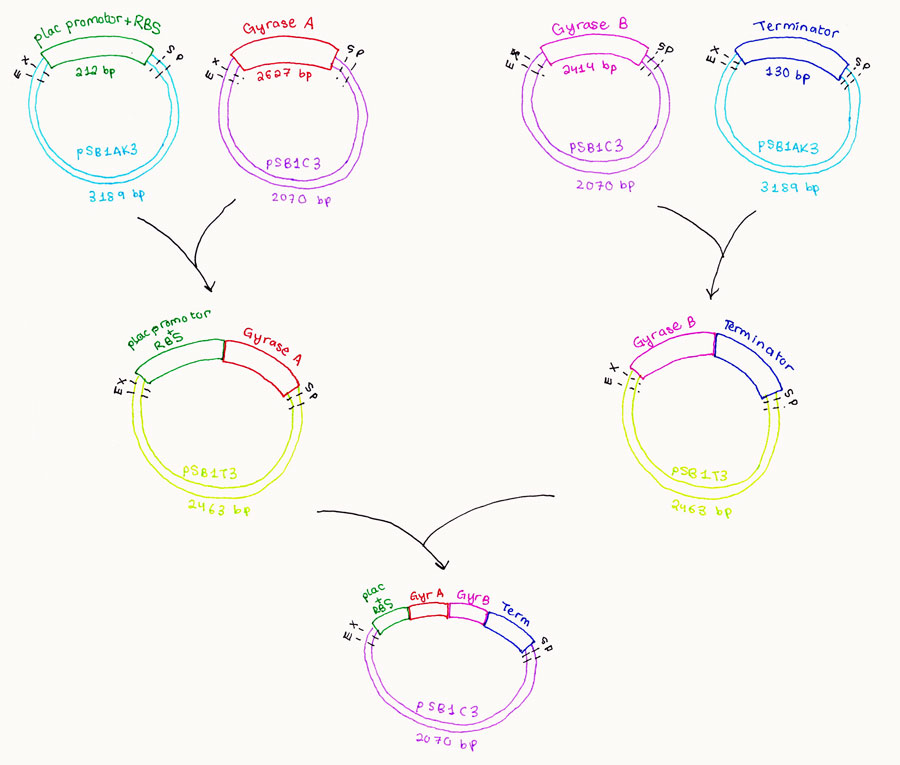 plac promotor + RBS
E X
S P
212 bp
pSB1AK3
3189 bp
Gyrase A
E X
S P
2627 bp
pSB1C3
2070 bp
Gyrase B
E X
S P
2414 bp
pSB1C3
2070 bp
Terminator
E X
S P
130 bp
pSB1AK3
3189 bp
plac promotor
+
RBS
Gyrase A
E X
S P
pSB1T3
2463 bp
Gyrase B
Terminator
E X
S P
pSB1T3
2463 bp
plac
+
RBS
Gyr A
Gyr B
Term
E X
S P
pSB1C3
2070 bp